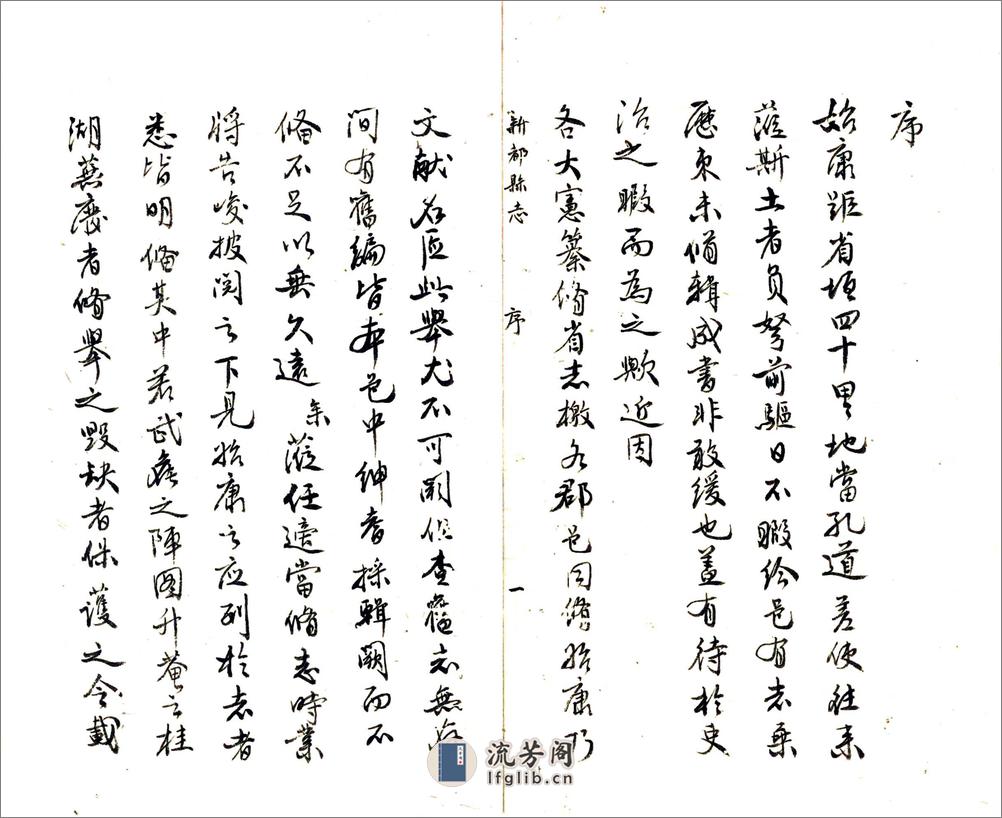 序
始康距省垣四十里地當孔道差使往来
蒞斯土者負弩前驅日不暇給邑有志乗
歷来未脩輯成書非敢緩也盖有待於吏
治之暇而為之歟近因
各大憲纂脩省志檄各郡邑同脩始康乃
新都縣志
序
一
文献名區此舉尤不可闕但查舊志無
間有舊編皆本邑中紳耆採輯闕而不
備不足以垂久遠余蒞任適當脩志時業
將告竣披閱之下見始康之应列於志者
悉皆明備其中若武侯之陣图升菴之桂
湖蕪廢者脩舉之毀缺者保護之今載
流芳阁
lfglib.cn